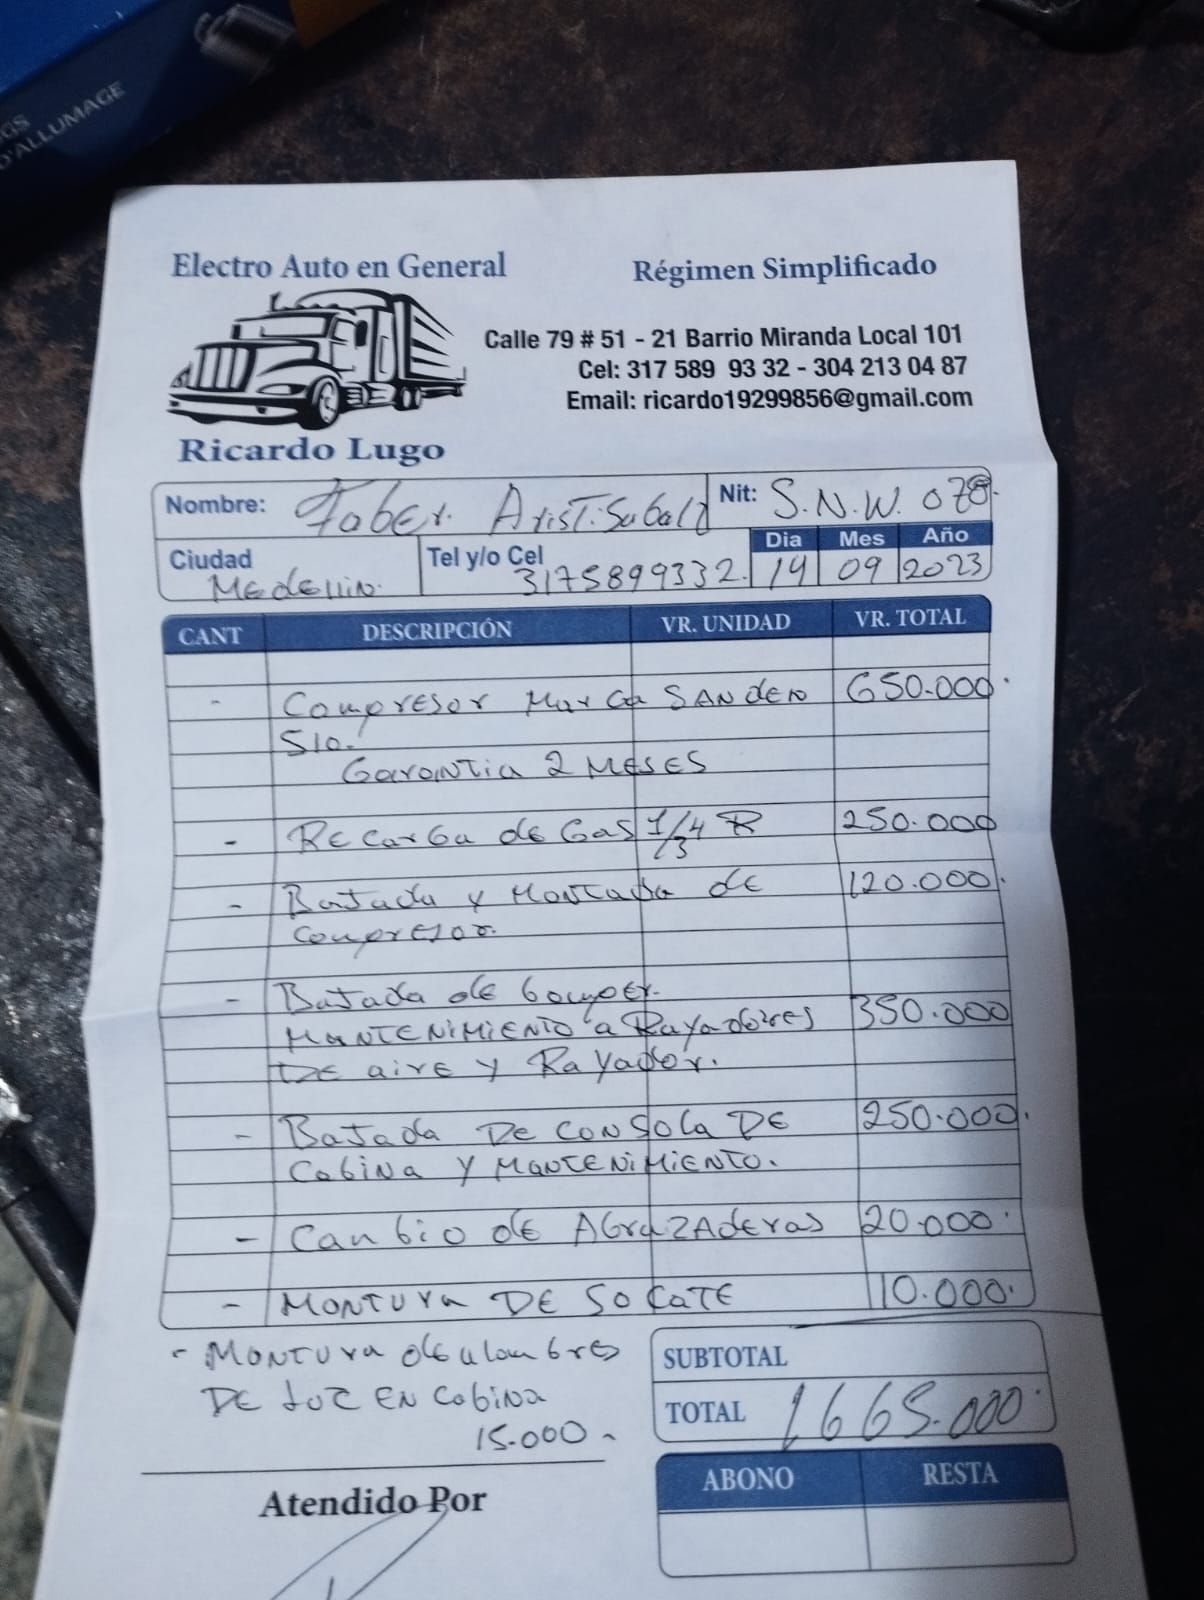 GS
D'ALLUMAGE
Electro Auto en General
Régimen Simplificado
Calle 79 # 51 - 21 Barrio Miranda Local 101
Cel: 317 589 93 32 - 304 213 04 87
Email: ricardo19299856@gmail.com
Ricardo Lugo
Nombre: Faber. Aristisabald Nit: S.N.W. 078.
Ciudad Medellin. Tel y/o Cel 3175899332. Dia 14 Mes 09 Año 2023
CANT DESCRIPCIÓN VR. UNIDAD VR. TOTAL
- Compresor Marca SANDEN 650.000.
510.
Garantia 2 MESES
- RECarga de Gas 1/4 R 250.000
- Bajada y Montada de 120.000.
compresor.
- Bajada de bomper.
MANTENIMIENTO a Rayadores 350.000
DE aire y Rayador.
- Bajada DE CONSOLA DE 250.000.
Cabina y MANTENIMIENTO.
- Canbio de AbrazADeras 20.000.
- MONTURA DE SOCATE 10.000.
- MONTURA de alambres
DE luz EN Cabina
15.000 -
SUBTOTAL
TOTAL 1665.000.
ABONO RESTA
Atendido Por